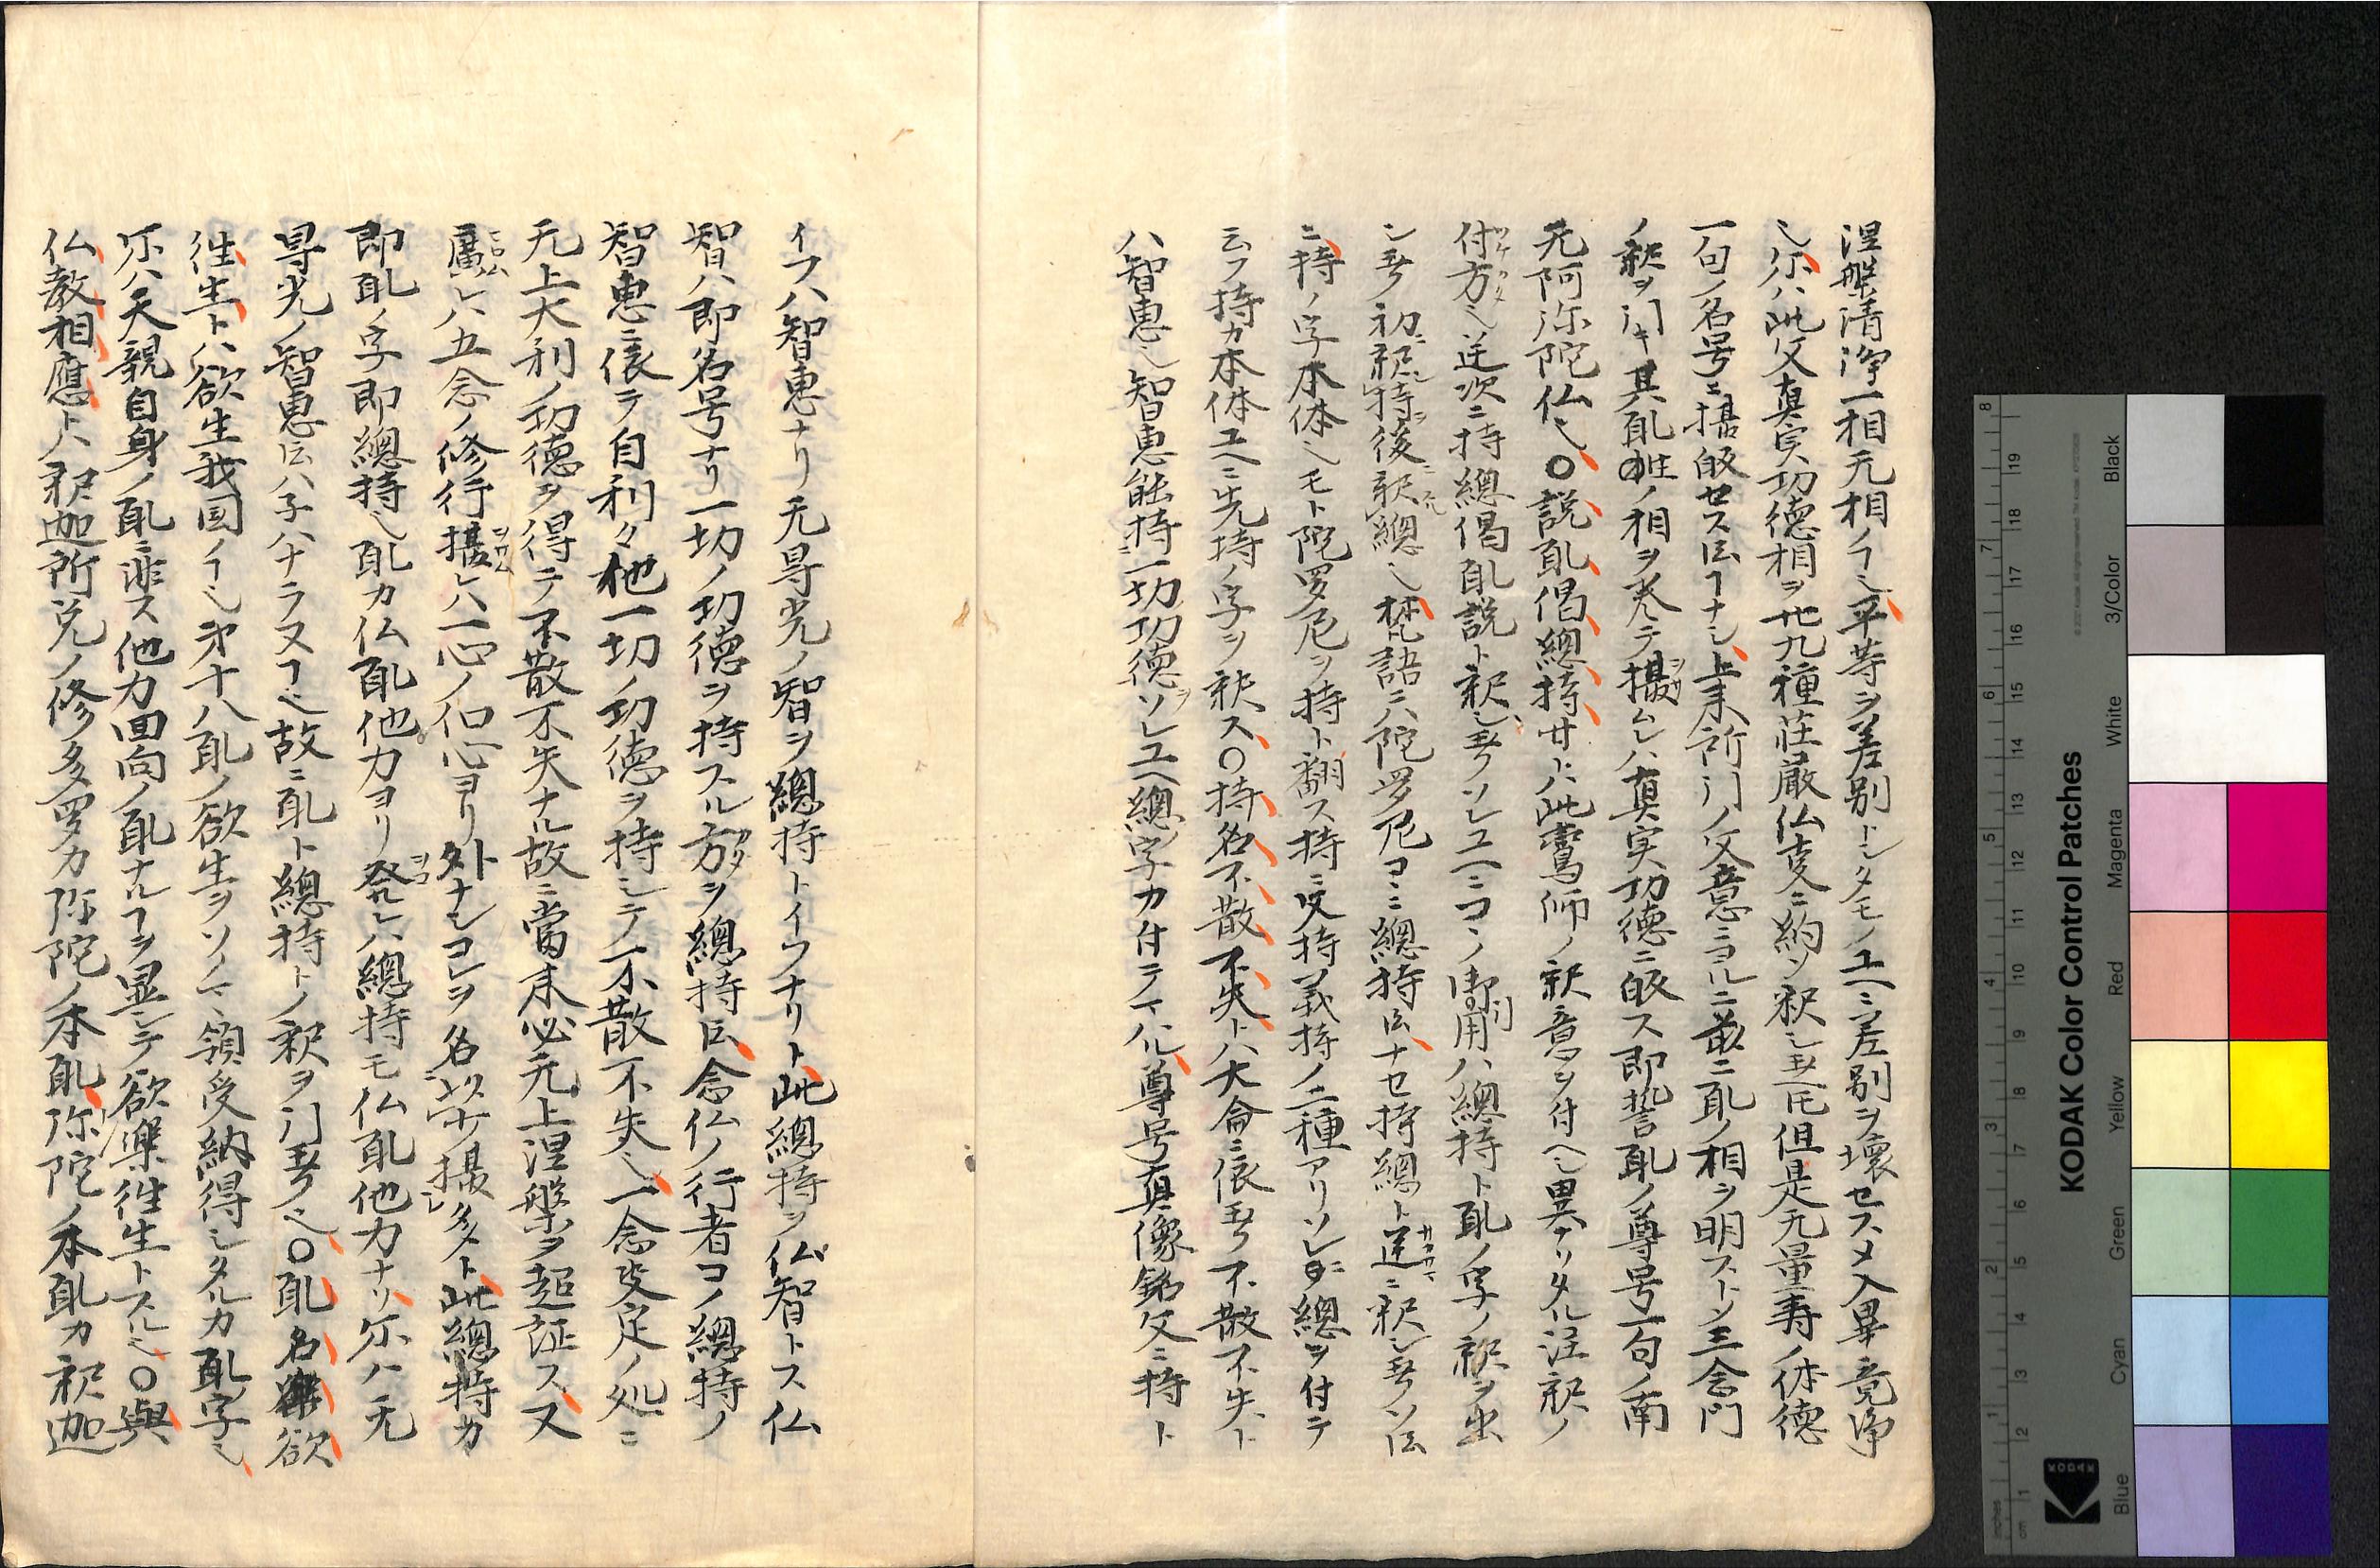 涅槃清浄一相无相ノ𬼂也平等ヲ差別トシタモノユヘニ差別ヲ壊セスメ入畢竟浄
也尓ハ此文真実功徳相ヲ廿九種荘厳仏土ニ約ソ釈シ玉ヘ𪜈但是无量寿ノ体徳
一句ノ名号ニ摂皈セスト云𬼀ナシ上来所引ノ文意ニヨル二最ニ䪼ノ相ヲ明ストソ三念門
ノ釈ヲ引キ其䪼性ノ相ヲ巻テ摂ムレハ真実功徳ニ皈ス即誓䪼ノ尊号一句ノ南
无阿弥陀仏也〇説䪼偈總持廿トハ此鸞師ノ釈意ヲ付ヘ也異ナリタル注釈ノ
付方也逆次ニ持總偈䪼説ト釈シ玉フソレユヘニコノ御引用ハ總持ト䪼ノ字ノ釈ヲ出
シ玉フ初ニ釈シ持ヲ後ニ釈總也梵語ニハ陀罗尼コヽニ總持ト云ナセ持總ト逆ニ釈シ玉フソト云
ニ持ノ字本体也モト陀罗尼ヲ持ト翻ス持ニ受持義持ノ二種アリソレ故ニ總ヲ付テ
云フ持カ本体ユヘニ先持ノ字ヲ釈ス〇持名不散不失トハ大論ニ依玉フ不散不失ト
ハ智恵也智恵能持一切功徳ヲソレユヘ總字カ付テマハル尊号真像銘文ニ持ト
イフハ智恵ナリ无㝵光ノ智ヲ總持トイフナリト此總持ヲ仏智トス仏
智ハ即名号ナリ一切ノ功徳ヲ持スル方ヲ總持ト云念仏ノ行者コノ總持ノ
智恵ニ依テ自利々他一切ノ功徳ヲ持シテ不散不失也一念决定ノ処ニ
无上大利ノ功徳ヲ得テ不散不失ナル故ニ當来必无上涅槃ヲ超証ス又
廣レハ五念ノ修行摂レハ一心ノ仏心ヨリ外ナシコレヲ名以少摂多ト此總持カ
即䪼ノ字即總持也䪼カ仏䪼他力ヨリ発レハ總持モ仏䪼他力ナリ尓ハ无
㝵光ノ智恵ト云ハ子ハナラヌ𬼀也故ニ䪼ト總持トノ釈ヲ引玉フ也〇䪼名欲樂
往生トハ欲生我国ノ𬼂也第十八䪼ノ欲生ヲソノマヽ領受納得シタルカ䪼字也
尓ハ天親自身ノ䪼ニ非ス他力回向ノ䪼ナル𬼀ヲ显シテ欲樂往生トスル也〇與
仏教相應トハ釈迦所説ノ修多罗カ弥陀ノ本䪼弥陀ノ本䪼カ釈迦
KODAK Color Control Patches
Blue Cyan Green Yellow Red Magenta White 3/Color Black